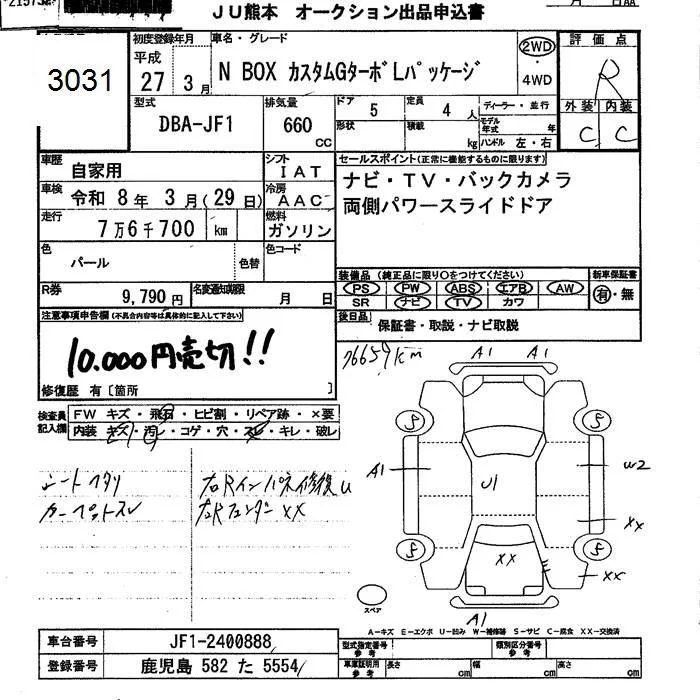 JU熊本 オークション出品申込書
3031
初度登録年月
平成
27 3月
車名・グレード
N BOX カスタムGターボLパッケージ
2WD
・
4WD
評価点
R
外装 内装
C C
型式
DBA-JF1
排気量
660
cc
ドア 5
定員 4 人
形状
積載 kg
ディーラー・並行
モデル年式 年
ハンドル 左・右
車歴
自家用
シフト
IAT
車検
令和 8年 3月(29日)
冷房
AAC
走行
7万6千700 km
燃料
ガソリン
セールスポイント(正常に機能するものに限ります)
ナビ・TV・バックカメラ
両側パワースライドドア
色
パール
色替
色コード
装備品(純正品に限り○をつけてください)
新車保証書
PS PW ABS エアB AW
SR ナビ TV カワ
有・無
R券
9,790円
名変通知期限
月 日
後日品
保証書・取説・ナビ取説
注意事項申告欄(不具合内容等は具体的に記入して下さい)
10.000円売切!!
修復歴 有〔箇所 〕
76659km
検査員記入欄
FW キズ・飛石・ヒビ割・リペア跡・×要
内装 キズ・汚レ・コゲ・穴・スレ・キレ・破レ
シートヘタリ
カーペットスレ
右Rインパネ修復U
右Rフェンダー XX
A1 A1
S S
A1
U1
U2
XX
S S
XX
XX
A1
スペア
A-キズ E-エクボ U-凹み W-補修跡 S-サビ C-腐食 XX-交換済
車台番号
JF1-2400888
登録番号
鹿児島 582 た 5554
型式指定番号
参考
類別区分番号
参考
車庫証明用
参考
長さ cm
幅 cm
高さ cm